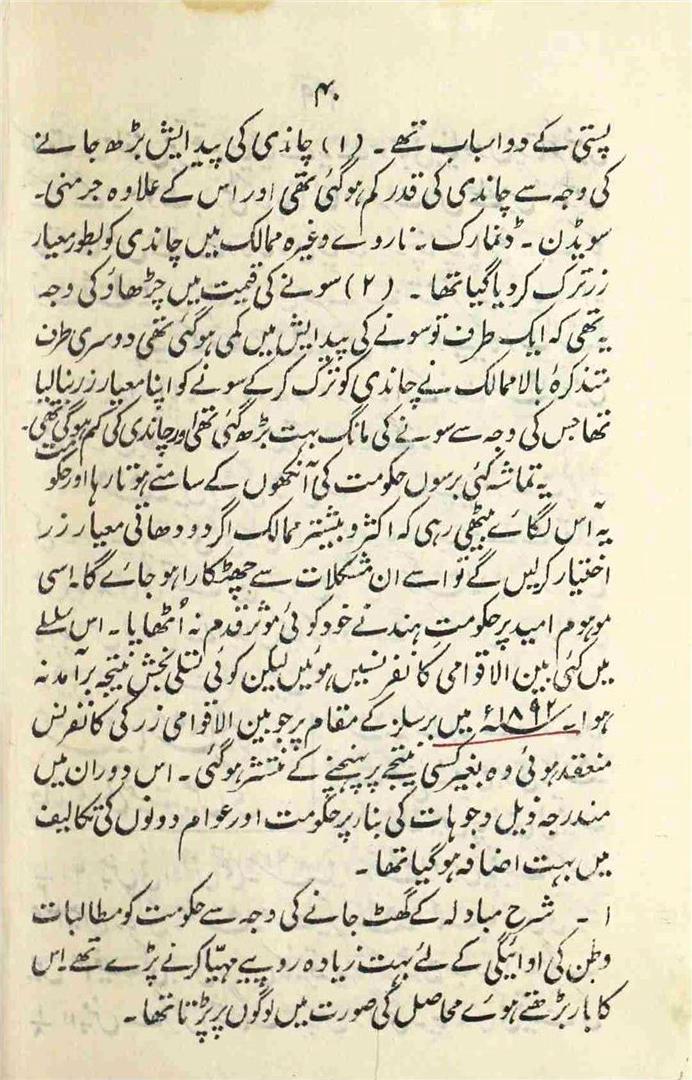 ۴۰
پستی کے دو اسباب تھے ۔ (۱) چاندی کی پیدایش بڑھ جانے
کی وجہ سے چاندی کی قدر کم ہوگئی تھی اور اس کے علاوہ جرمنی۔
سویڈن ۔ ڈنمارک ۔ ناروے وغیرہ ممالک میں چاندی کو بطور معیار
زر ترک کر دیا گیا تھا ۔ (۲) سونے کی قیمت میں چڑھاؤ کی وجہ
یہ تھی کہ ایک طرف تو سونے کی پیدایش میں کمی ہوگئی تھی دوسری طرف
متذکرۂ بالا ممالک نے چاندی کو ترک کرکے سونے کو اپنا معیار زر بنالیا
تھا جس کی وجہ سے سونے کی مانگ بہت بڑھ گئی تھی اور چاندی کی کم ہوگئی تھی۔
یہ تماشہ کئی برسوں حکومت کی آنکھوں کے سامنے ہوتا رہا اور حکومت
یہ آس لگائے بیٹھی رہی کہ اکثر و بیشتر ممالک اگر دو دھاتی معیار زر
اختیار کرلیں گے تو اسے ان مشکلات سے چھٹکارا ہو جائے گا۔ اسی
موہوم امید پر حکومتِ ہند نے خود کوئی موثر قدم نہ اُٹھایا ۔ اس سلسلے
میں کئی بین الاقوامی کانفرنسیں ہوئیں لیکن کوئی تسلی بخش نتیجہ برآمد نہ
ہوا۔ ۱۸۹۲ء میں برسلز کے مقام پر جو بین الاقوامی زر کی کانفرنس
منعقد ہوئی وہ بغیر کسی نتیجے پر پہنچنے کے منتشر ہوگئی ۔ اس دوران میں
مندرجہ ذیل وجوہات کی بنار پر حکومت اور عوام دونوں کی تکالیف
میں بہت اضافہ ہوگیا تھا ۔
۱ ۔ شرح مبادلہ کے گھٹ جانے کی وجہ سے حکومت کو مطالبات
وطن کی اوائیگی کے لئے بہت زیادہ روپیے مہیّا کرنے پڑے تھے۔ اس
کا بار بڑھتے ہوئے محاصل کی صورت میں لوگوں پر پڑتا تھا ۔